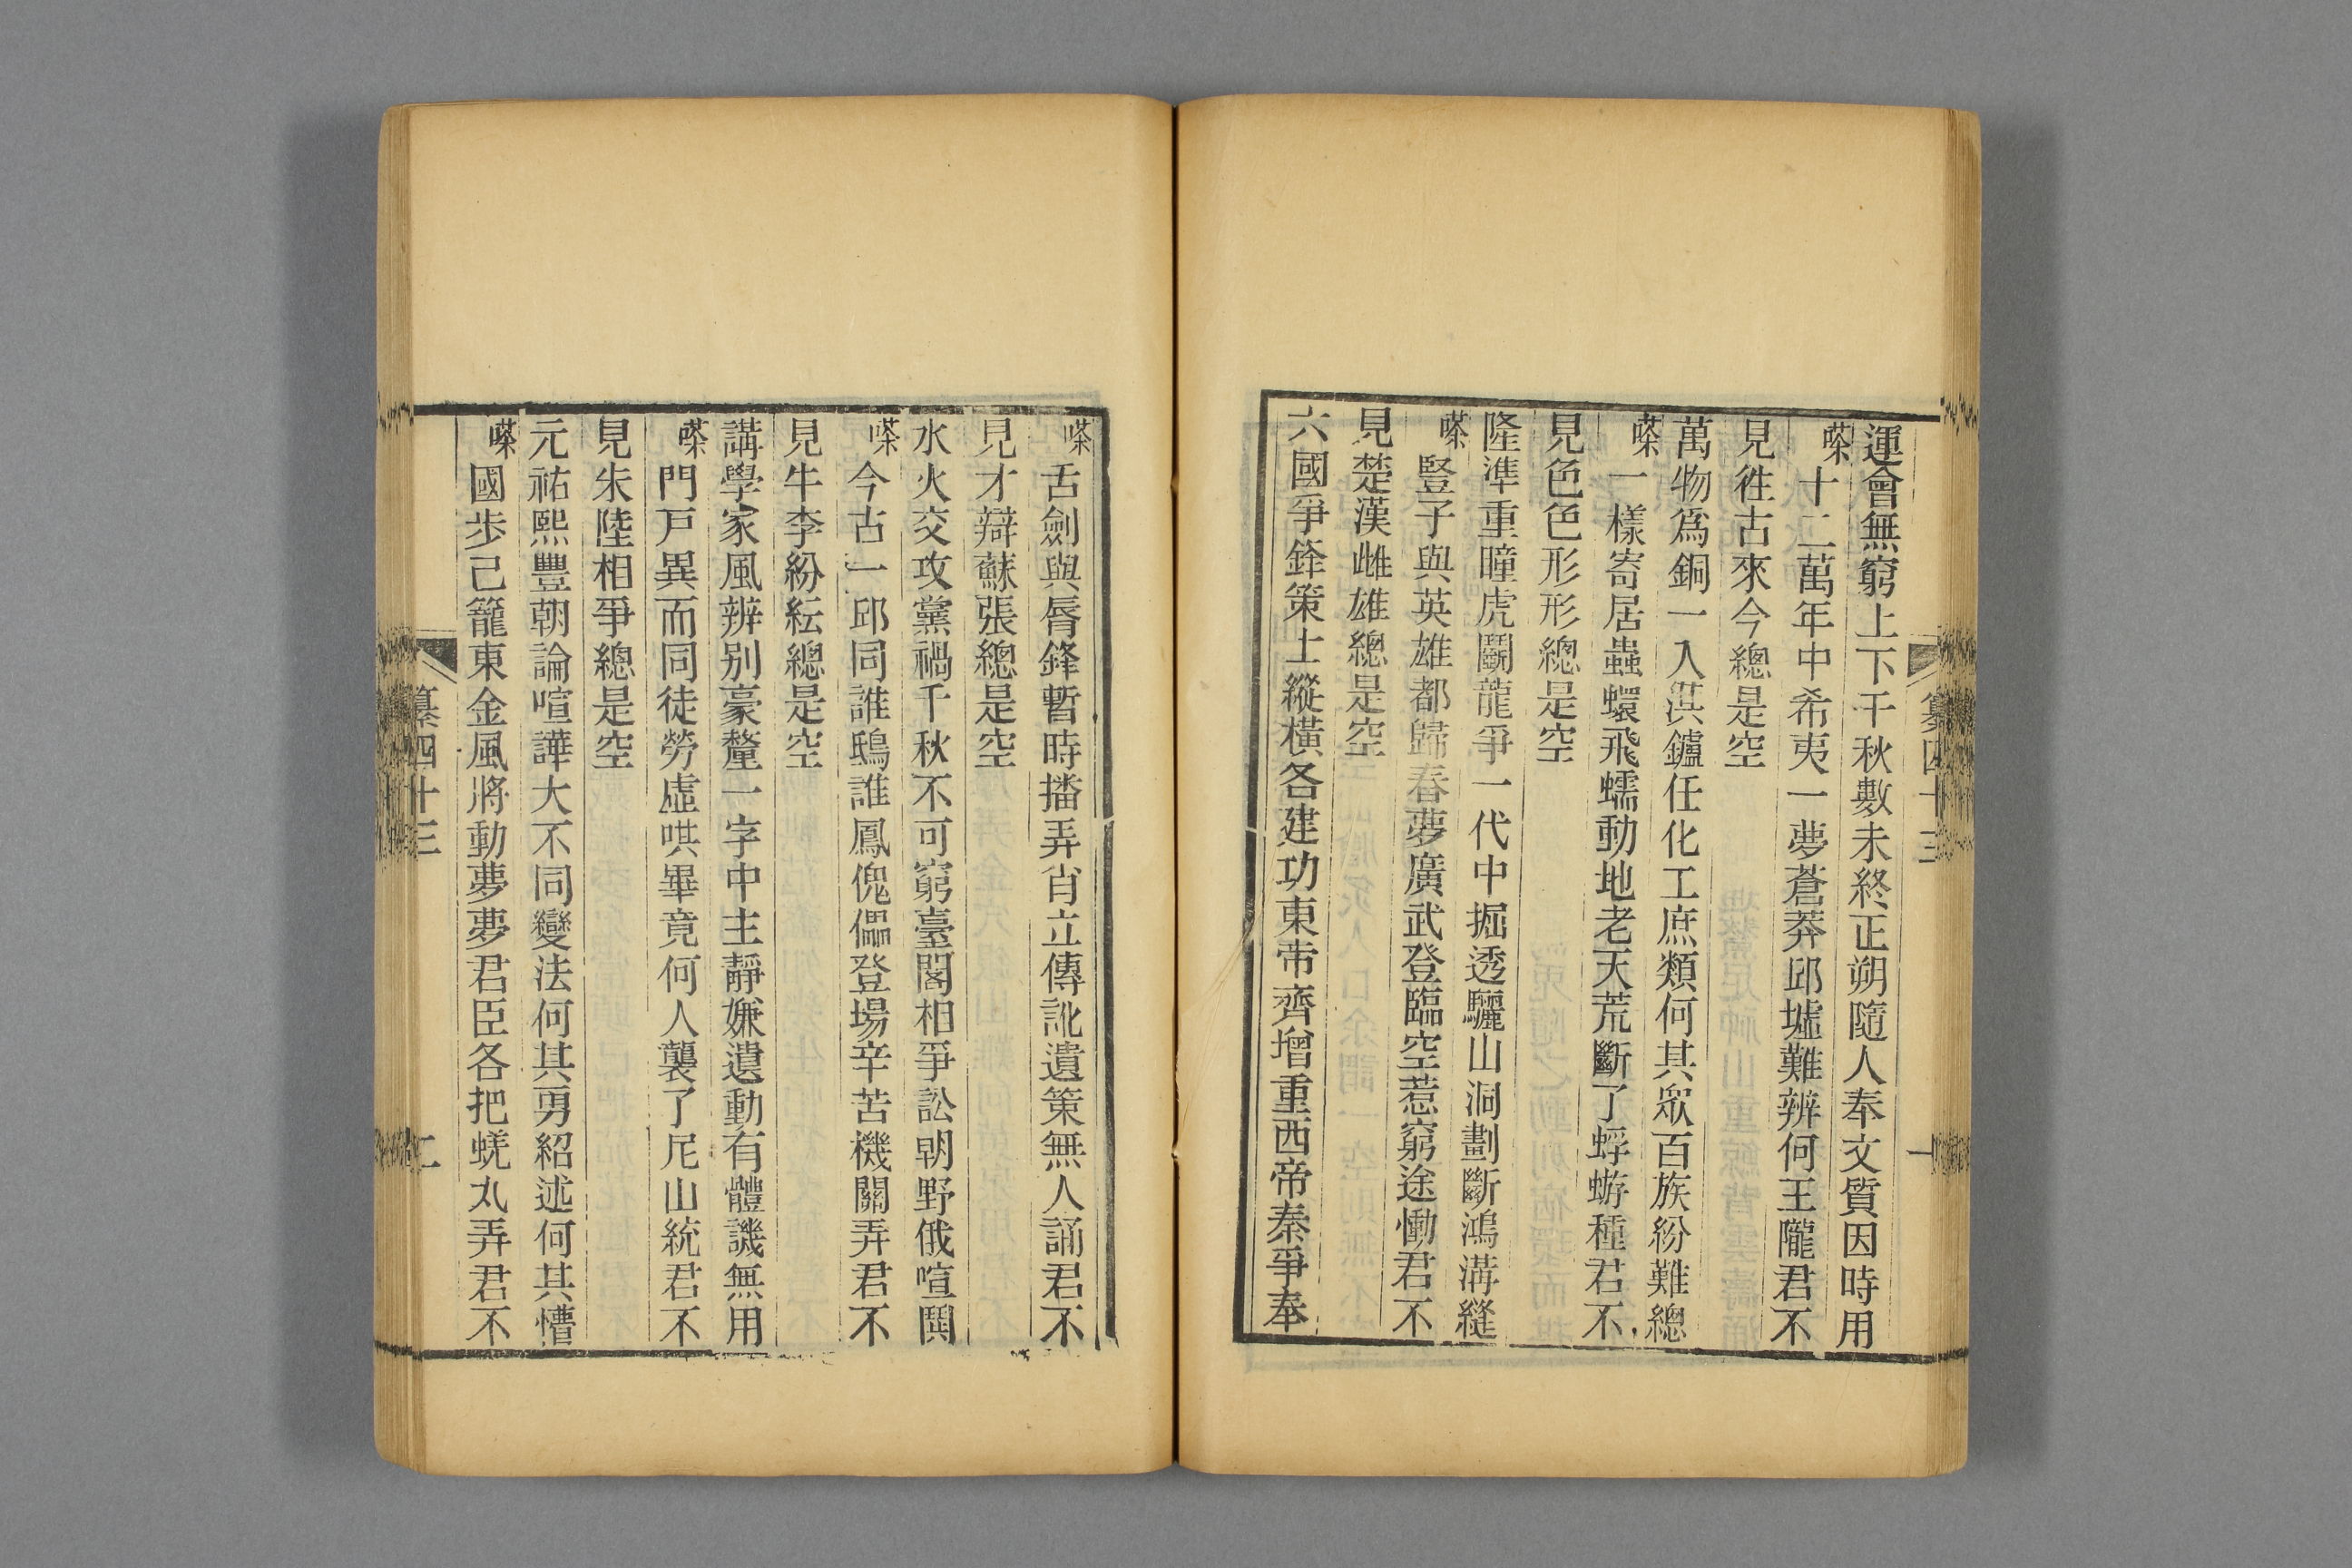 纂四十三
一
運會無窮上下千秋數未終正朔隨人奉文質因時用
嗏十二萬年中希夷一夢蒼莽邱墟難辨何王隴君不
見徃古來今總是空
萬物爲銅一入洪鑪任化工庶類何其眾百族紛難總
嗏一樣寄居蟲蠉飛蠕動地老天荒斷了蜉蝣種君不
見色色形形總是空
隆準重瞳虎鬭龍爭一代中掘透驪山洞劃斷鴻溝縫
嗏豎子與英雄都歸春夢廣武登臨空惹窮途慟君不
見楚漢雌雄總是空
六國爭鋒策士縱橫各建功東帝齊增重西帝秦爭奉
嗏舌劍與脣鋒暫時播弄肖立傳訛遺策無人誦君不
見才辯蘇張總是空
水火交攻黨禍千秋不可窮臺閣相爭訟朝野俄喧鬨
嗏今古一邱同誰鴟誰鳳傀儡登場辛苦機關弄君不
見牛李紛紜總是空
講學家風辨别豪釐一字中主靜嫌遺動有體譏無用
嗏門戸異而同徒勞虛哄畢竟何人襲了尼山統君不
見朱陸相爭總是空
元祐熙豐朝論喧譁大不同變法何其勇紹述何其懵
嗏國步已籠東金風將動夢夢君臣各把蜣丸弄君不
纂四十三
二